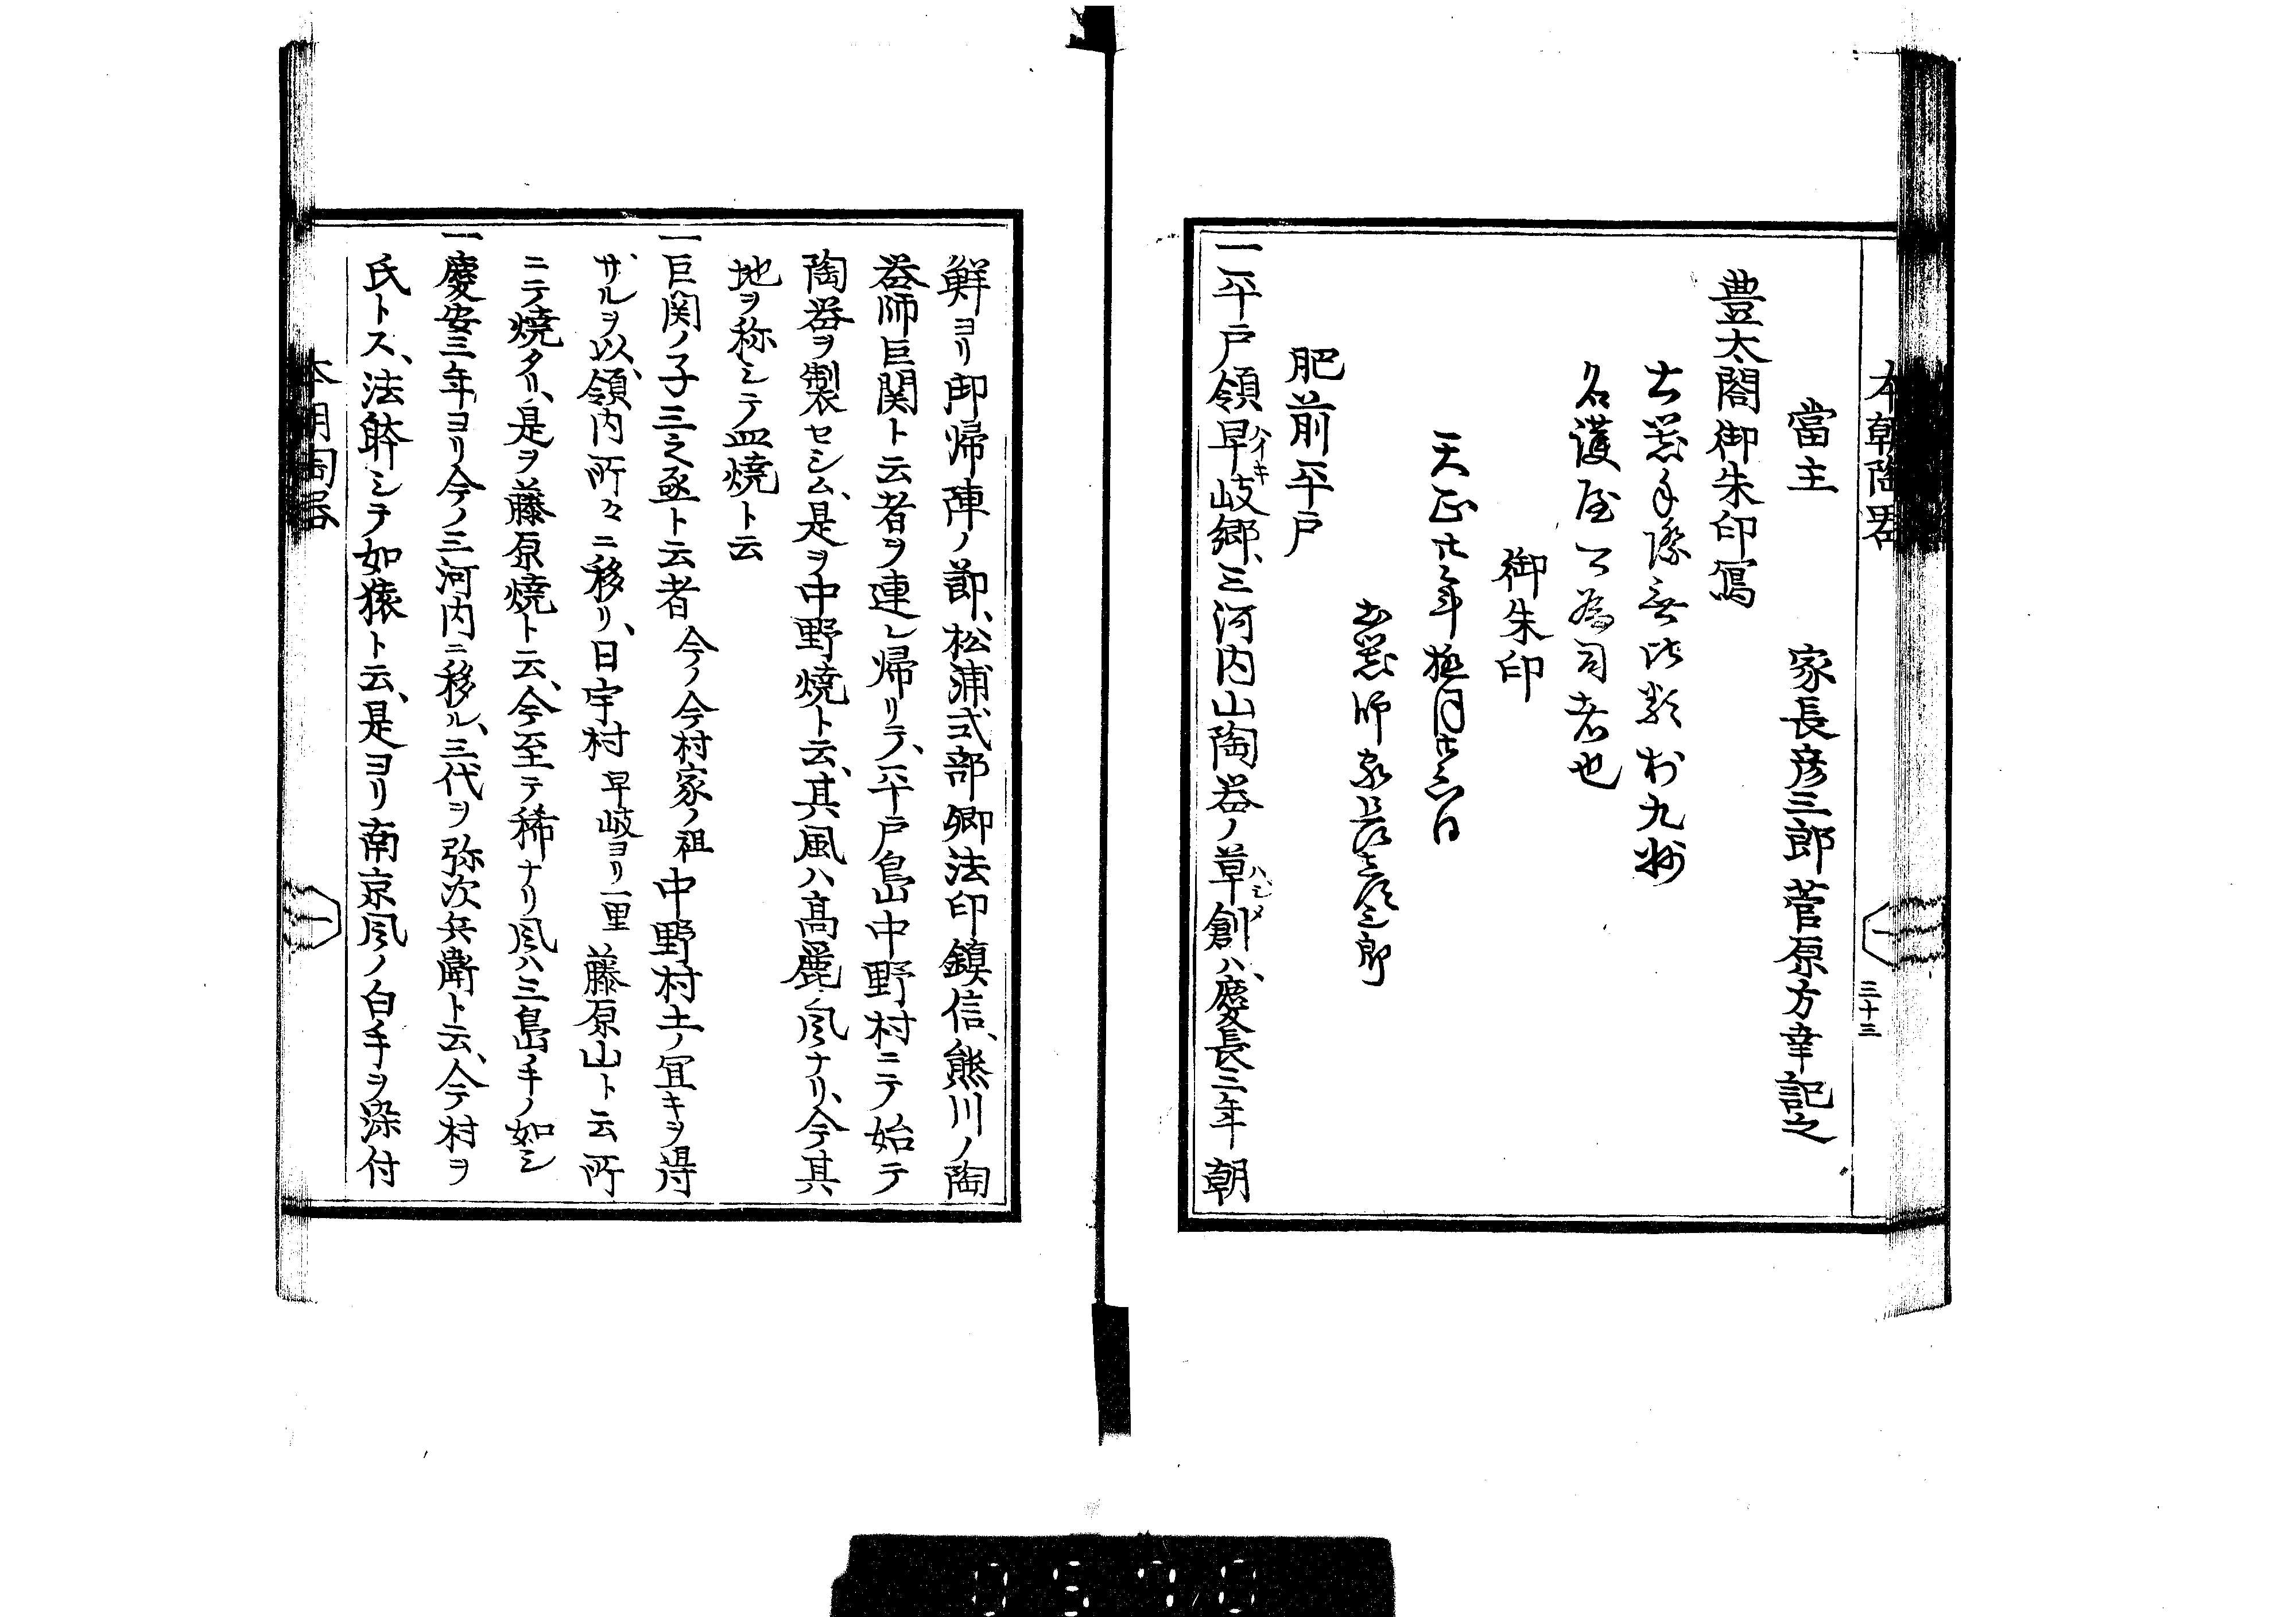 本朝陶器
三十三
當主　家長彦三郎菅原方幸記之
豊太閤御朱印寫
土器手際無比類於九州
名護屋可為司者也
御朱印
天正廿年極月廿六日
土器師家長彦三郎
肥前平戸
一平戸領早岐郷、三河内山陶器ノ草創ハ、慶長三年朝
ハイキ
ハジメ
鮮ヨリ御帰陣ノ節、松浦式部卿法印鎮信、熊川ノ陶
器師巨関ト云者ヲ連レ帰リテ、平戸島中野村ニテ始テ
陶器ヲ製セシム、是ヲ中野焼ト云、其風ハ高麗風ナリ、今其
地ヲ称シテ皿焼ト云
一巨関ノ子三之丞ト云者今ノ今村家ノ祖中野村土ノ宜キヲ得
ザルヲ以、領内所々ニ移リ、日宇村早岐ヨリ一里藤原山ト云所
ニテ焼タリ、是ヲ藤原焼ト云、今至テ稀ナリ風ハ三島手ノ如シ
一慶安三年ヨリ今ノ三河内ニ移ル、三代ヲ弥次兵衛ト云、今村ヲ
氏トス、法躰シテ如猿ト云、是ヨリ南京風ノ白手ヲ染付
本朝陶器